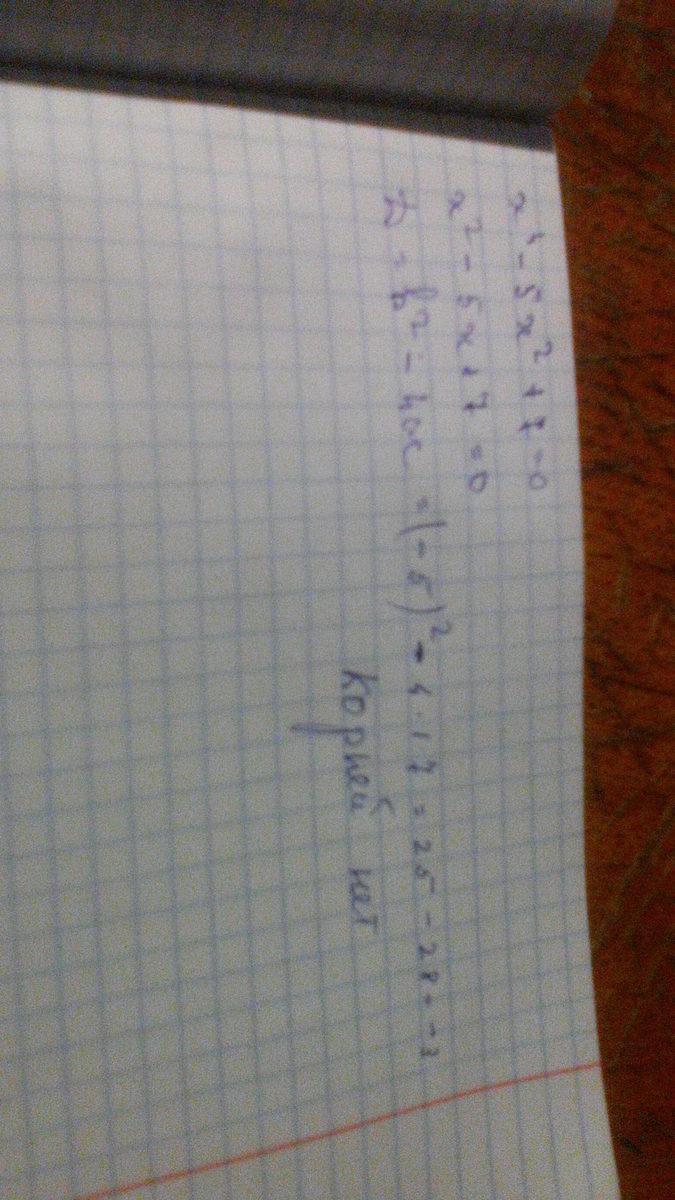 x⁴ - 5x² + 7 = 0
x² - 5x + 7 = 0
D = b² - 4ac = (-5)² - 4·1·7 = 25 - 28 = -3
Корней нет